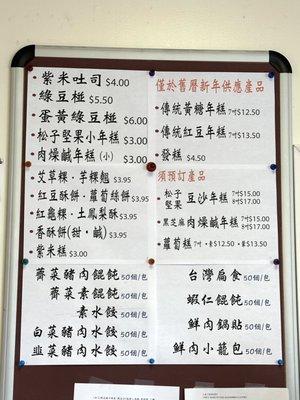 紫米吐司 $4.00
綠豆椪 $5.50
蛋黃綠豆椪 $6.00
松子堅果小年糕 $3.00
肉燥鹹年糕(小) $3.00
艾草粿‧芋粿翹 $3.95
紅豆酥餅‧蘿蔔絲餅 $3.95
紅龜粿‧土鳳梨酥 $3.95
香酥餅(甜‧鹹) $3.95
紫米糕 $3.00
薺菜豬肉餛飩 50個/包
薺菜素餛飩 50個/包
素水餃 50個/包
白菜豬肉水餃 50個/包
韭菜豬肉水餃 50個/包
僅於舊曆新年供應產品
傳統黃糖年糕 7吋$12.50
傳統紅豆年糕 7吋$13.50
發糕 $4.50
須預訂產品
松子堅果 豆沙年糕 7吋$15.00 8吋$17.00
黑芝麻肉燥鹹年糕 7吋$15.00 8吋$17.00
蘿蔔糕 $12.50 $13.50
台灣扁食 50個/包
蝦仁餛飩 50個/包
鮮肉鍋貼 50個/包
鮮肉小籠包 50個/包